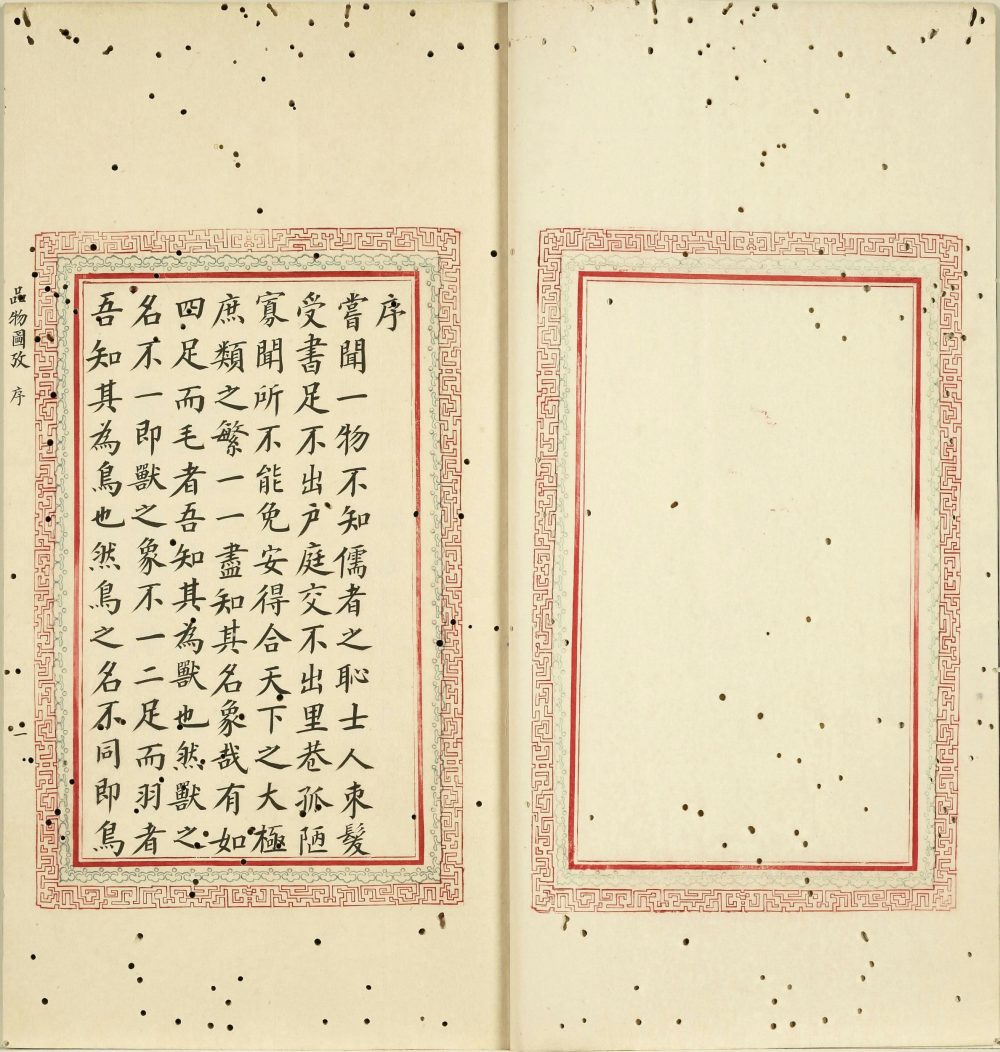 序
嘗聞一物不知儒者之恥士人束髮
受書足不出户庭交不出里巷孤陋
寡聞所不能免安得合天下之大極
庶類之繁一一盡知其名象哉有如
四足而毛者吾知其為獸也然獸之
名不一即獸之象不一二足而羽者
吾知其為鳥也然鳥之名不同即鳥
品物圖攷 序 一